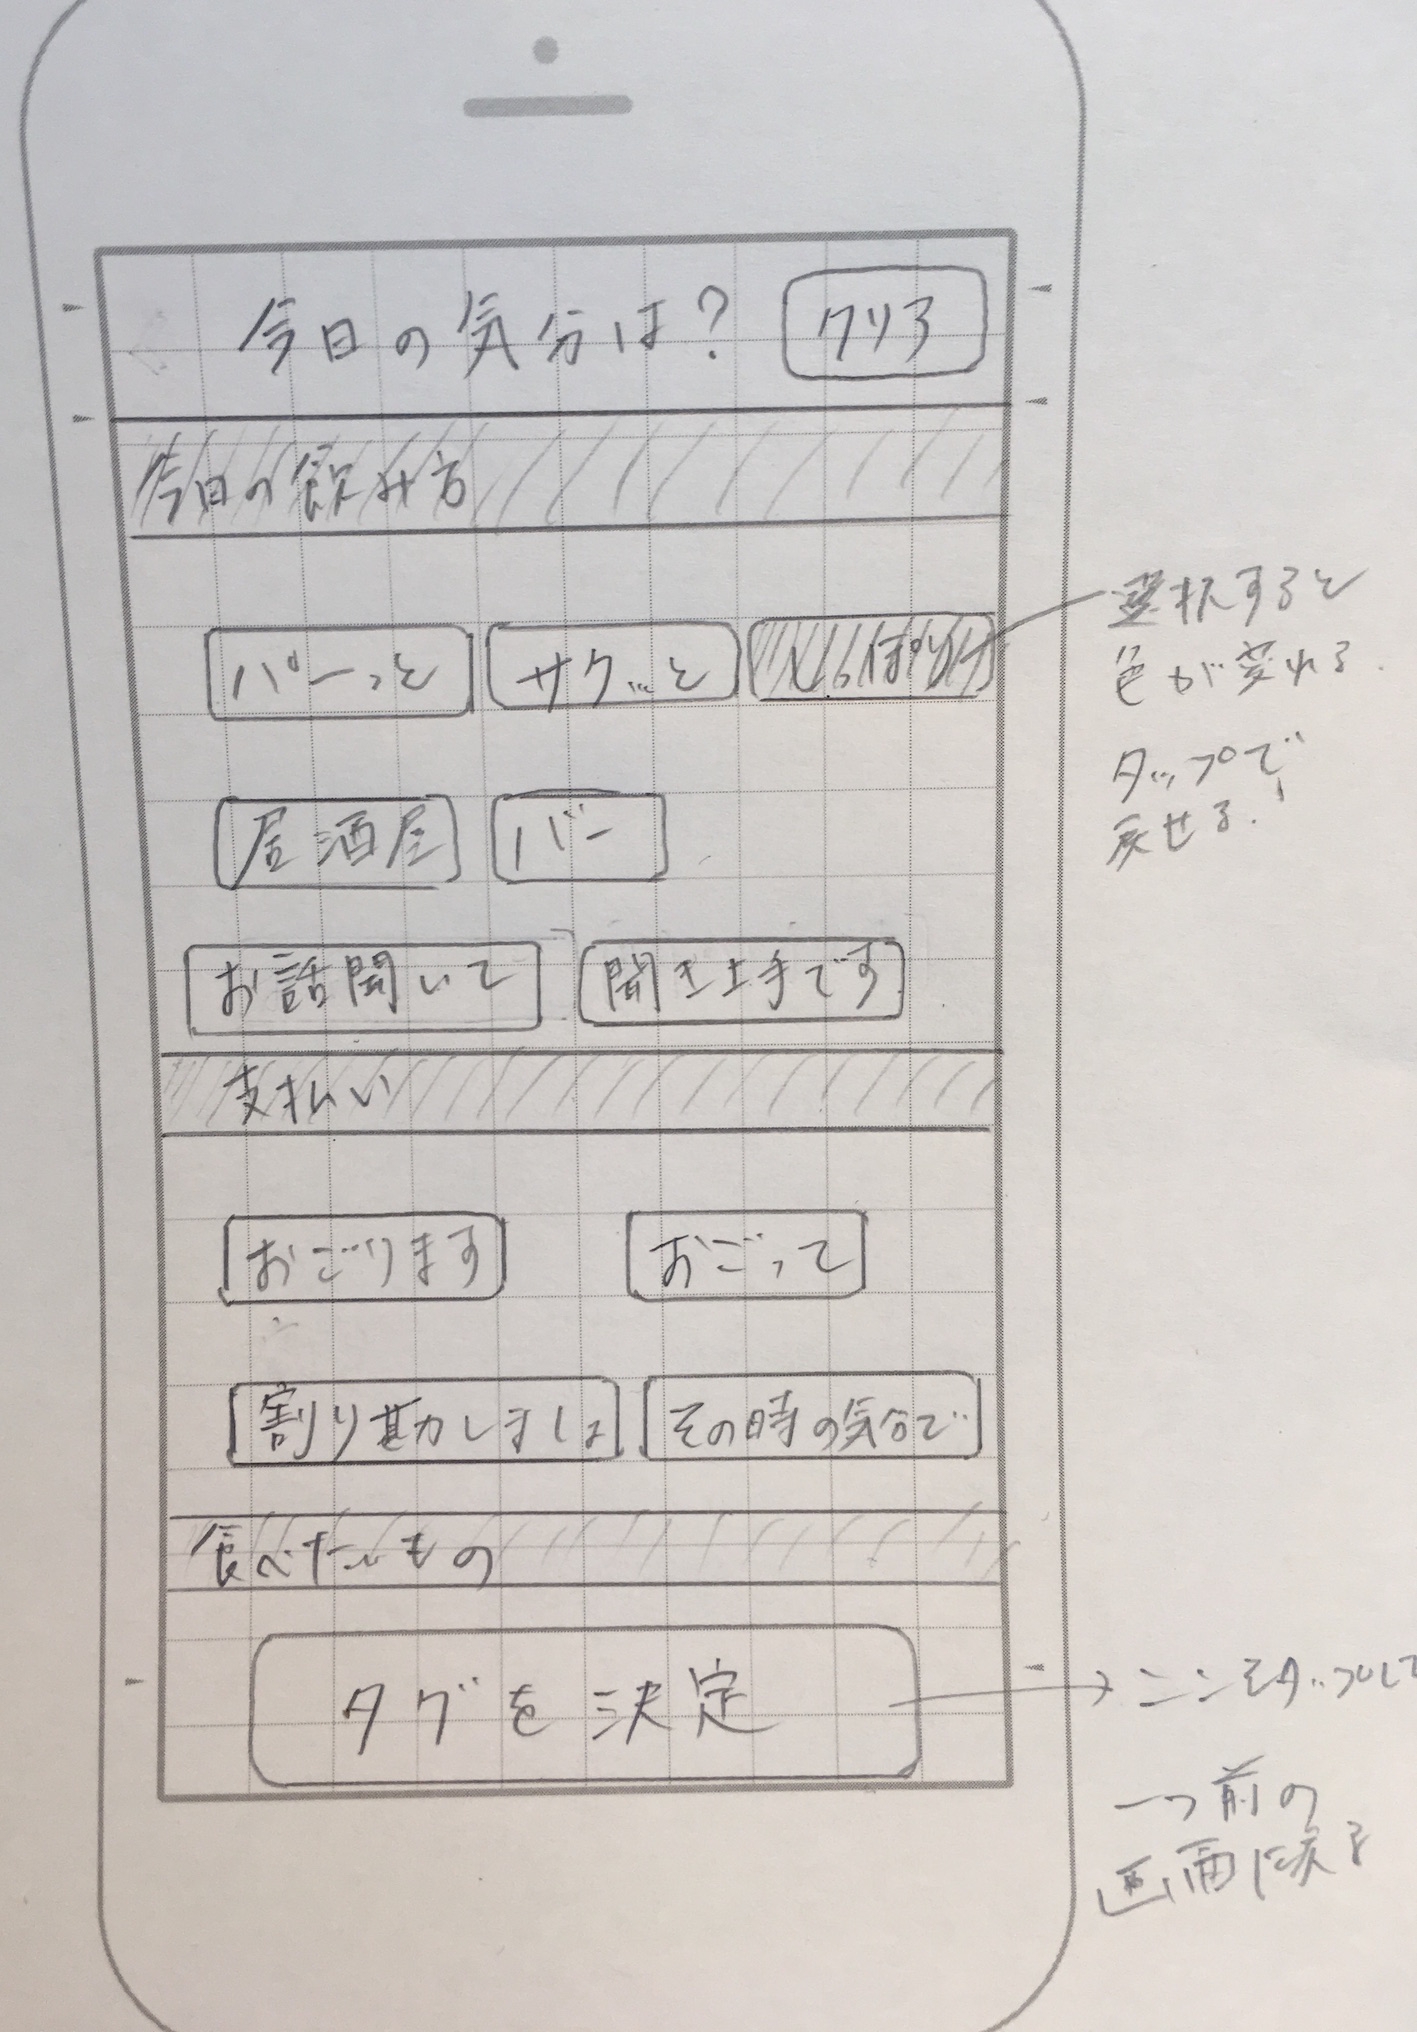 今日の気分は? クリア
今日の飲み方
パーっと サクッと しっぽり
選択すると
色が変わる.
タップで
戻せる.
居酒屋 バー
お話聞いて 聞き上手です
支払い
おごります おごって
割り勘しましょ その時の気分で
食べたいもの
タグを決定
ココをタップして
一つ前の
画面に戻る